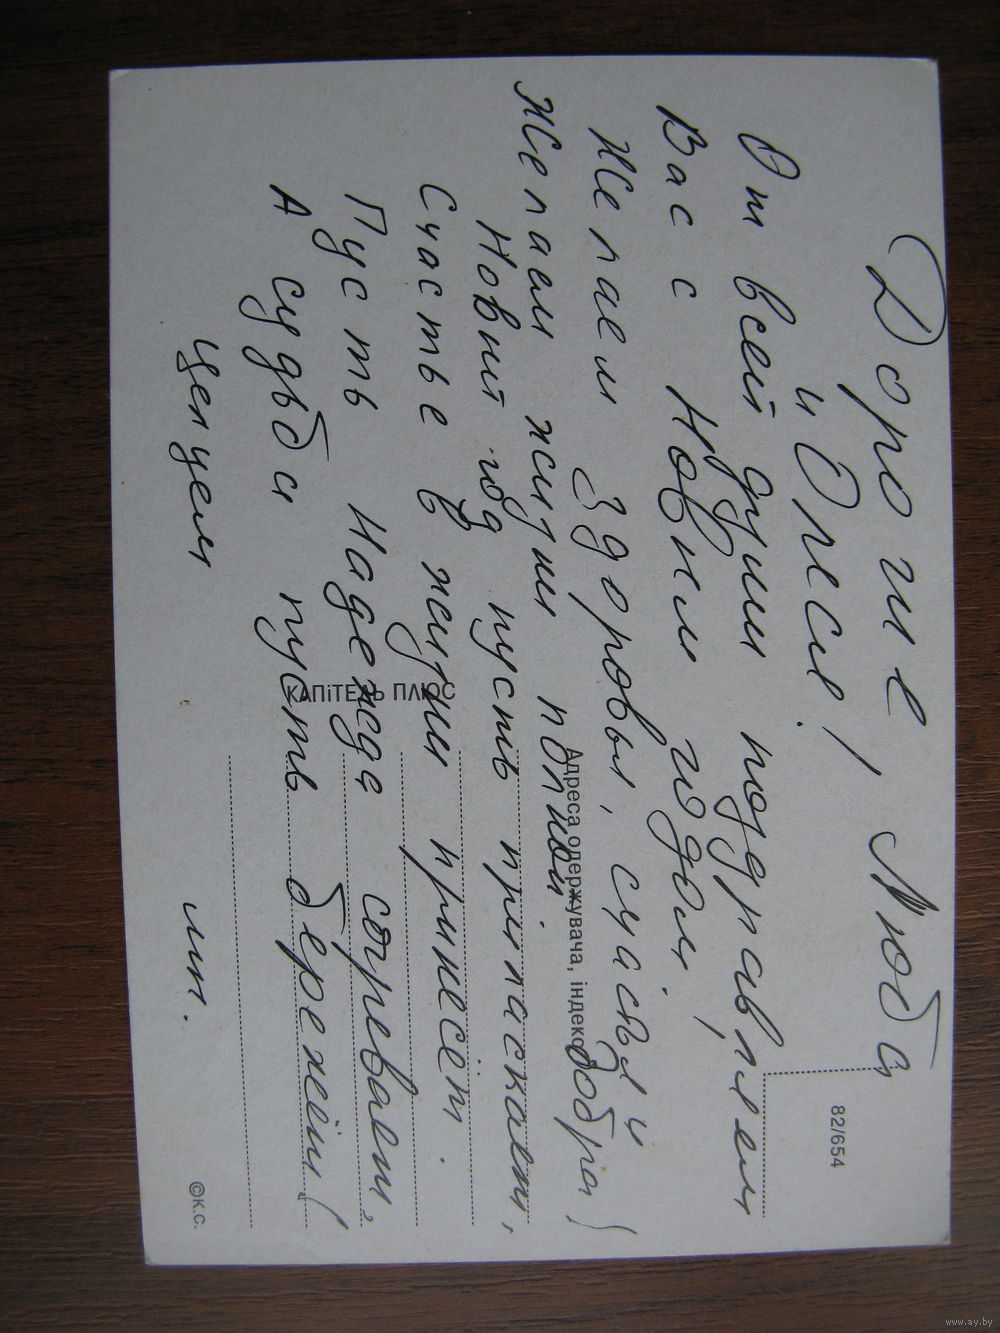 Дорогие! Люба
и Олеся!
От всей души поздравляем
Вас с Новым годом.
Желаем здоровья, счастья и
Желаем жизни полной добра!
Новый год пусть приласкает,
Счастье в жизни принесёт.
Пусть надежда согревает,
А судьба пусть бережёт!
Целуем
82/654
Адреса одержувача, індекс
КАПіТЕЛЬ ПЛЮС
©К.С.
www.ay.by